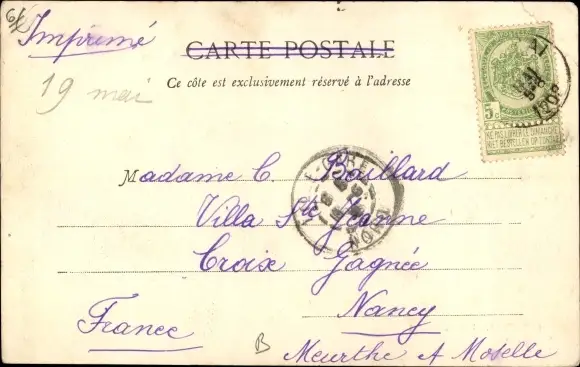 Imprimé
CARTE POSTALE
Ce côté est exclusivement réservé à l'adresse
19 mai
5c
NE PAS LIVRER LE DIMANCHE
NIET BESTELLEN OP ZONDAG
Madame C. Baillard
Villa Ste Jeanne
Croix Gagnée
Nancy
France
B
Meurthe & Moselle